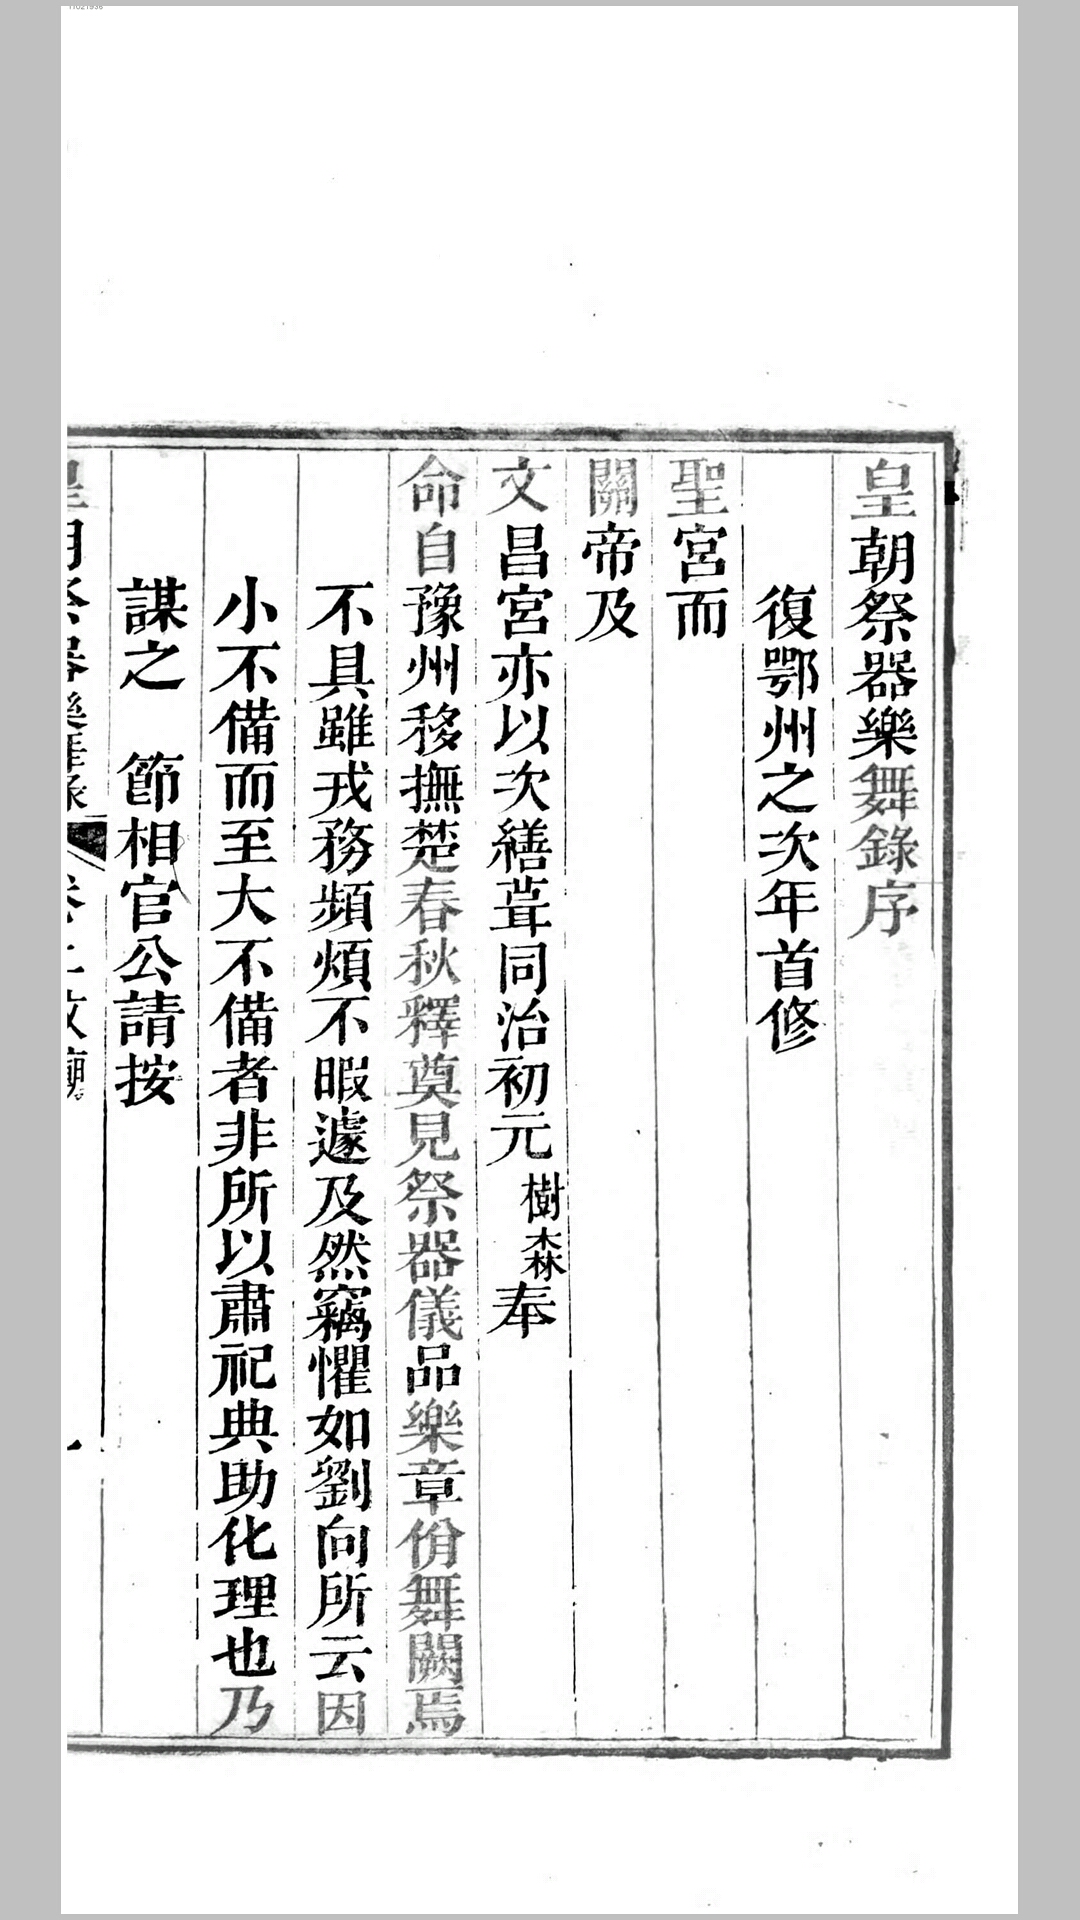 皇朝祭器樂舞錄序
復鄂州之次年首修
聖宮而
關帝及
文昌宮亦以次繕葺同治初元樹森奉
命自豫州移撫楚春秋釋奠見祭器儀品樂章佾舞闕焉
不具雖戎務頻煩不暇遽及然竊懼如劉向所云因
小不備而至大不備者非所以肅祀典助化理也乃
謀之 節相官公請按